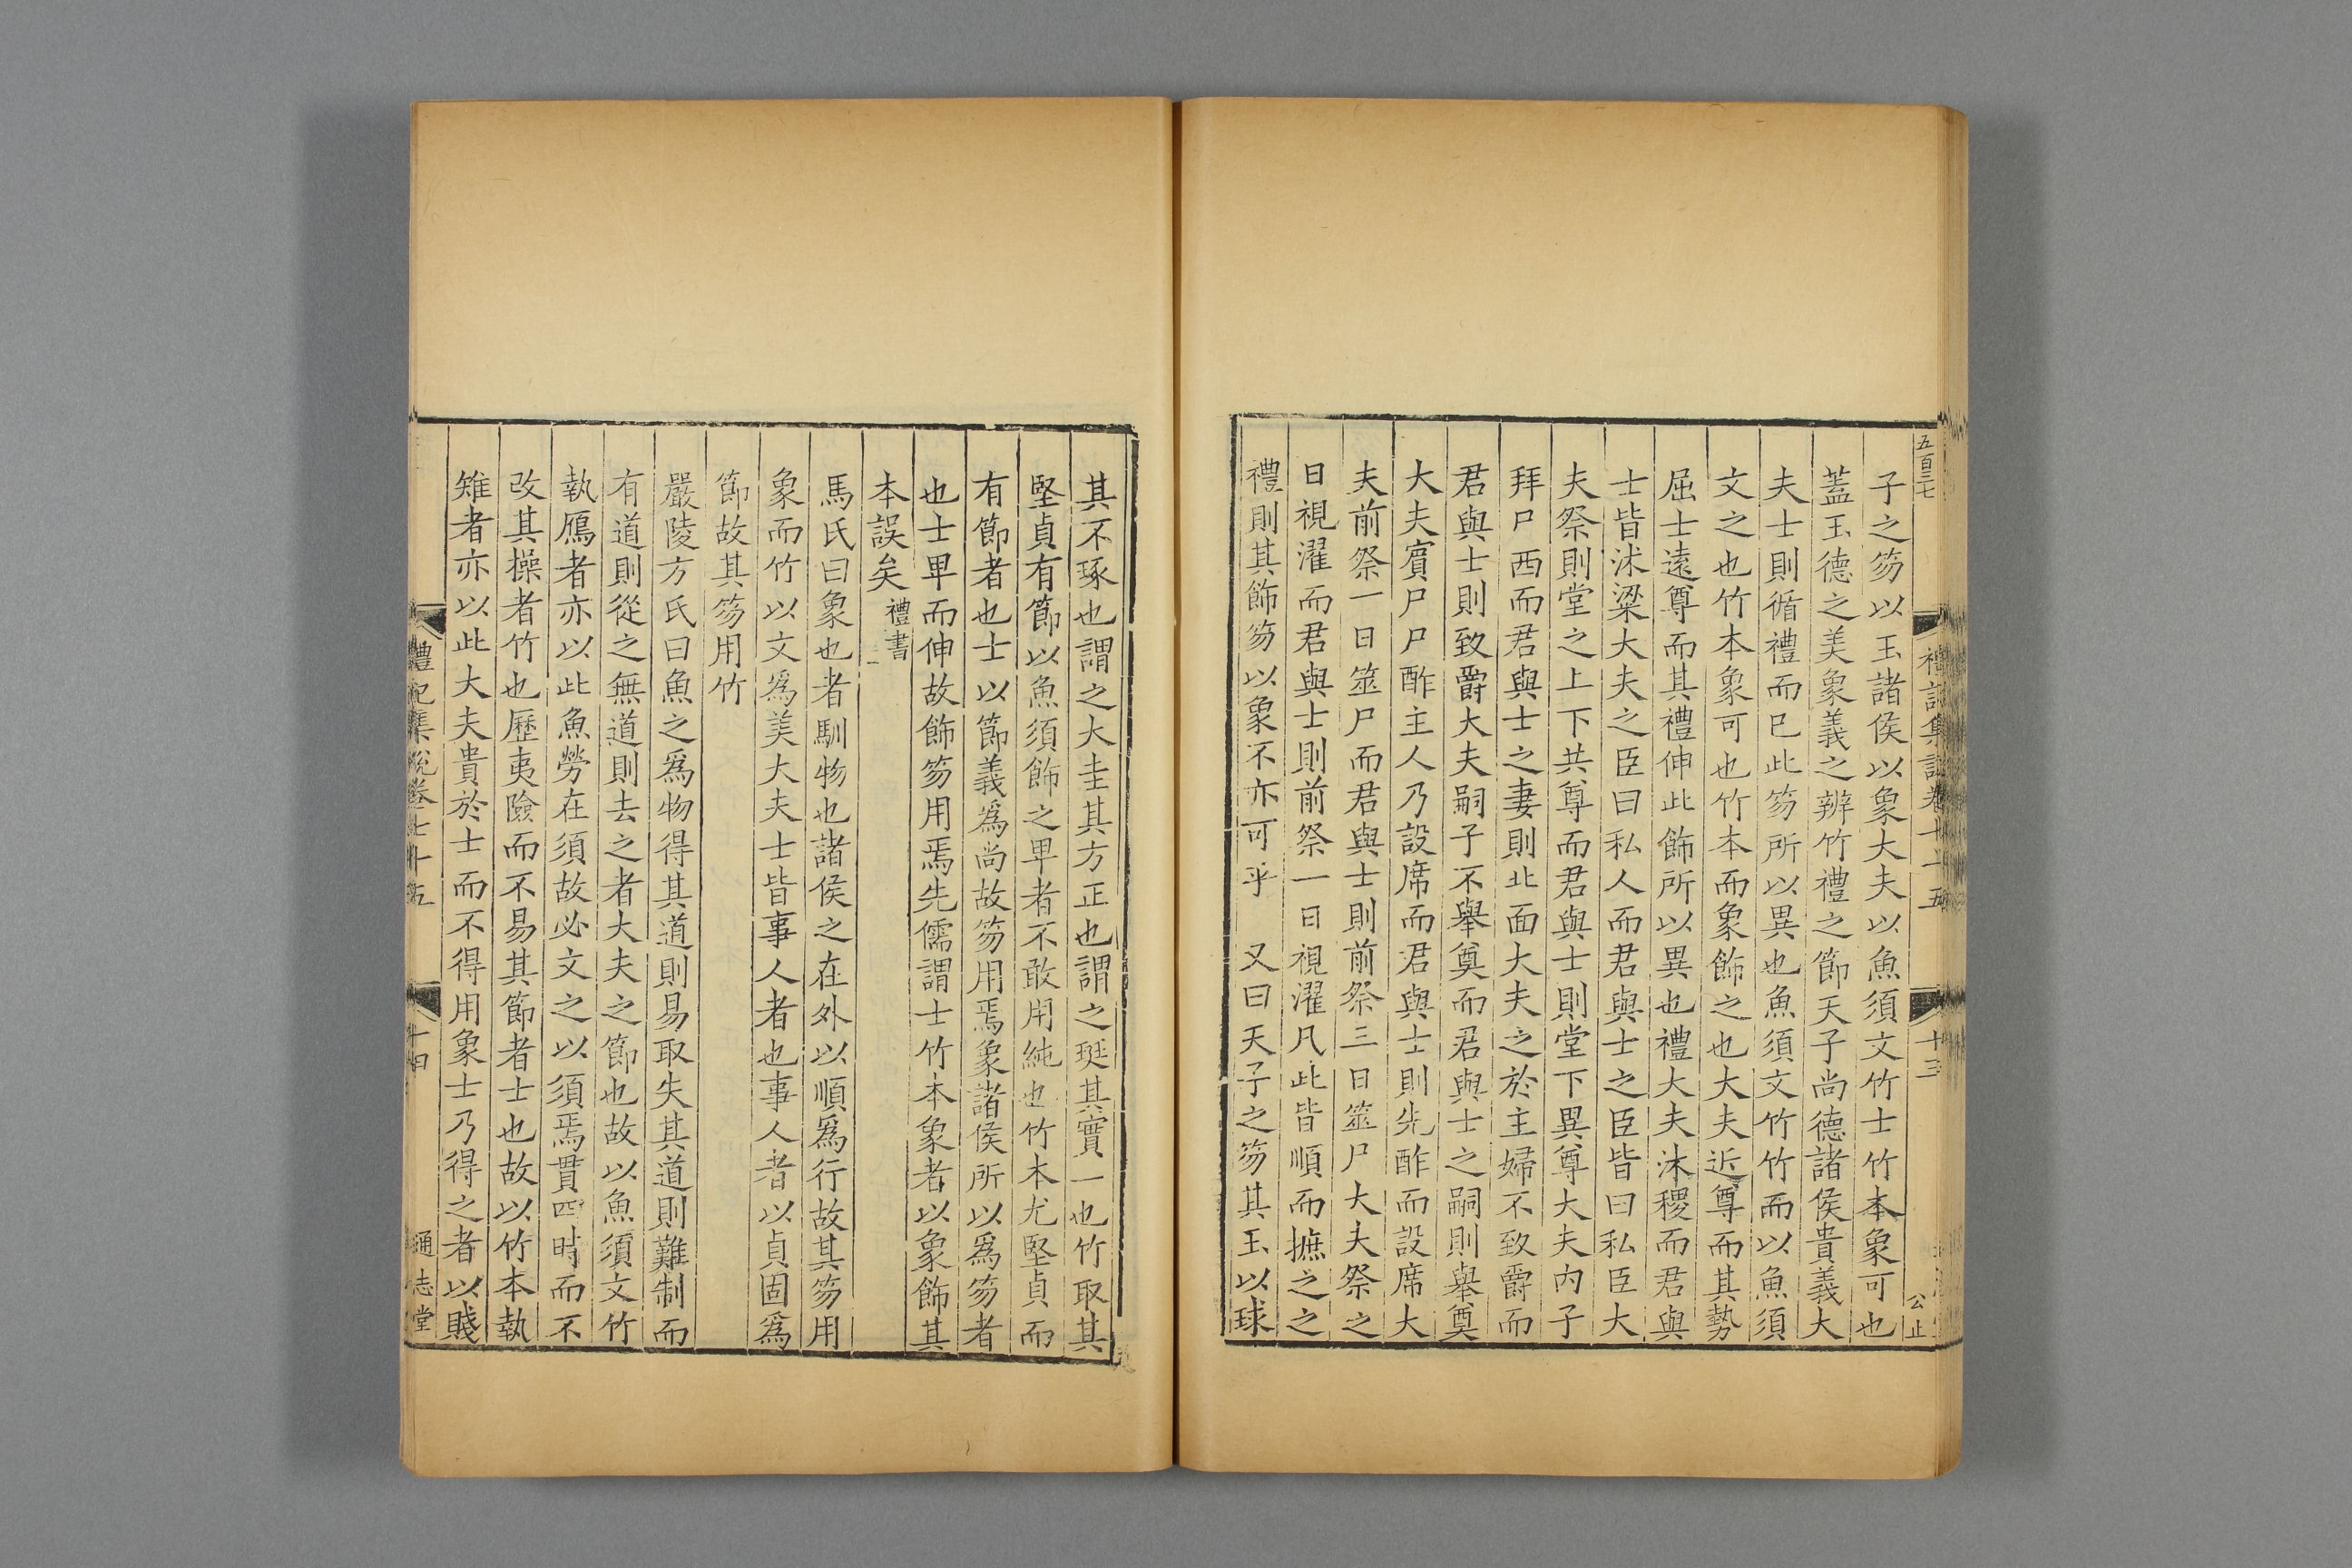 五百三七
禮記集說卷七十五
十三
公止
子之笏以玉諸侯以象大夫以魚須文竹士竹本象可也
蓋玉德之美象義之辨竹禮之節天子尚德諸侯貴義大
夫士則循禮而已此笏所以異也魚須文竹竹而以魚須
文之也竹本象可也竹本而象飾之也大夫近尊而其勢
屈士遠尊而其禮伸此飾所以異也禮大夫沐稷而君與
士皆沐粱大夫之臣曰私人而君與士之臣皆曰私臣大
夫祭則堂之上下共尊而君與士則堂下異尊大夫內子
拜尸西而君與士之妻則北面大夫之於主婦不致爵而
君與士則致爵大夫嗣子不舉奠而君與士之嗣則舉奠
大夫賓尸尸酢主人乃設席而君與士則先酢而設席大
夫前祭一日筮尸而君與士則前祭三日筮尸大夫祭之
日視濯而君與士則前祭一日視濯凡此皆順而摭之之
禮則其飾笏以象不亦可乎　又曰天子之笏其玉以球
其不琢也謂之大圭其方正也謂之珽其實一也竹取其
堅貞有節以魚須飾之卑者不敢用純也竹本尤堅貞而
有節者也士以節義為尚故笏用焉象諸侯所以為笏者
也士卑而伸故飾笏用焉先儒謂士竹本象者以象飾其
本誤矣禮書
馬氏曰象也者馴物也諸侯之在外以順為行故其笏用
象而竹以文為美大夫士皆事人者也事人者以貞固為
節故其笏用竹
嚴陵方氏曰魚之為物得其道則易取失其道則難制而
有道則從之無道則去之者大夫之節也故以魚須文竹
執鴈者亦以此魚勞在須故必文之以須焉貫四時而不
改其操者竹也歷夷險而不易其節者士也故以竹本執
雉者亦以此大夫貴於士而不得用象士乃得之者以賤
禮記集說卷七十五
十四
通志堂